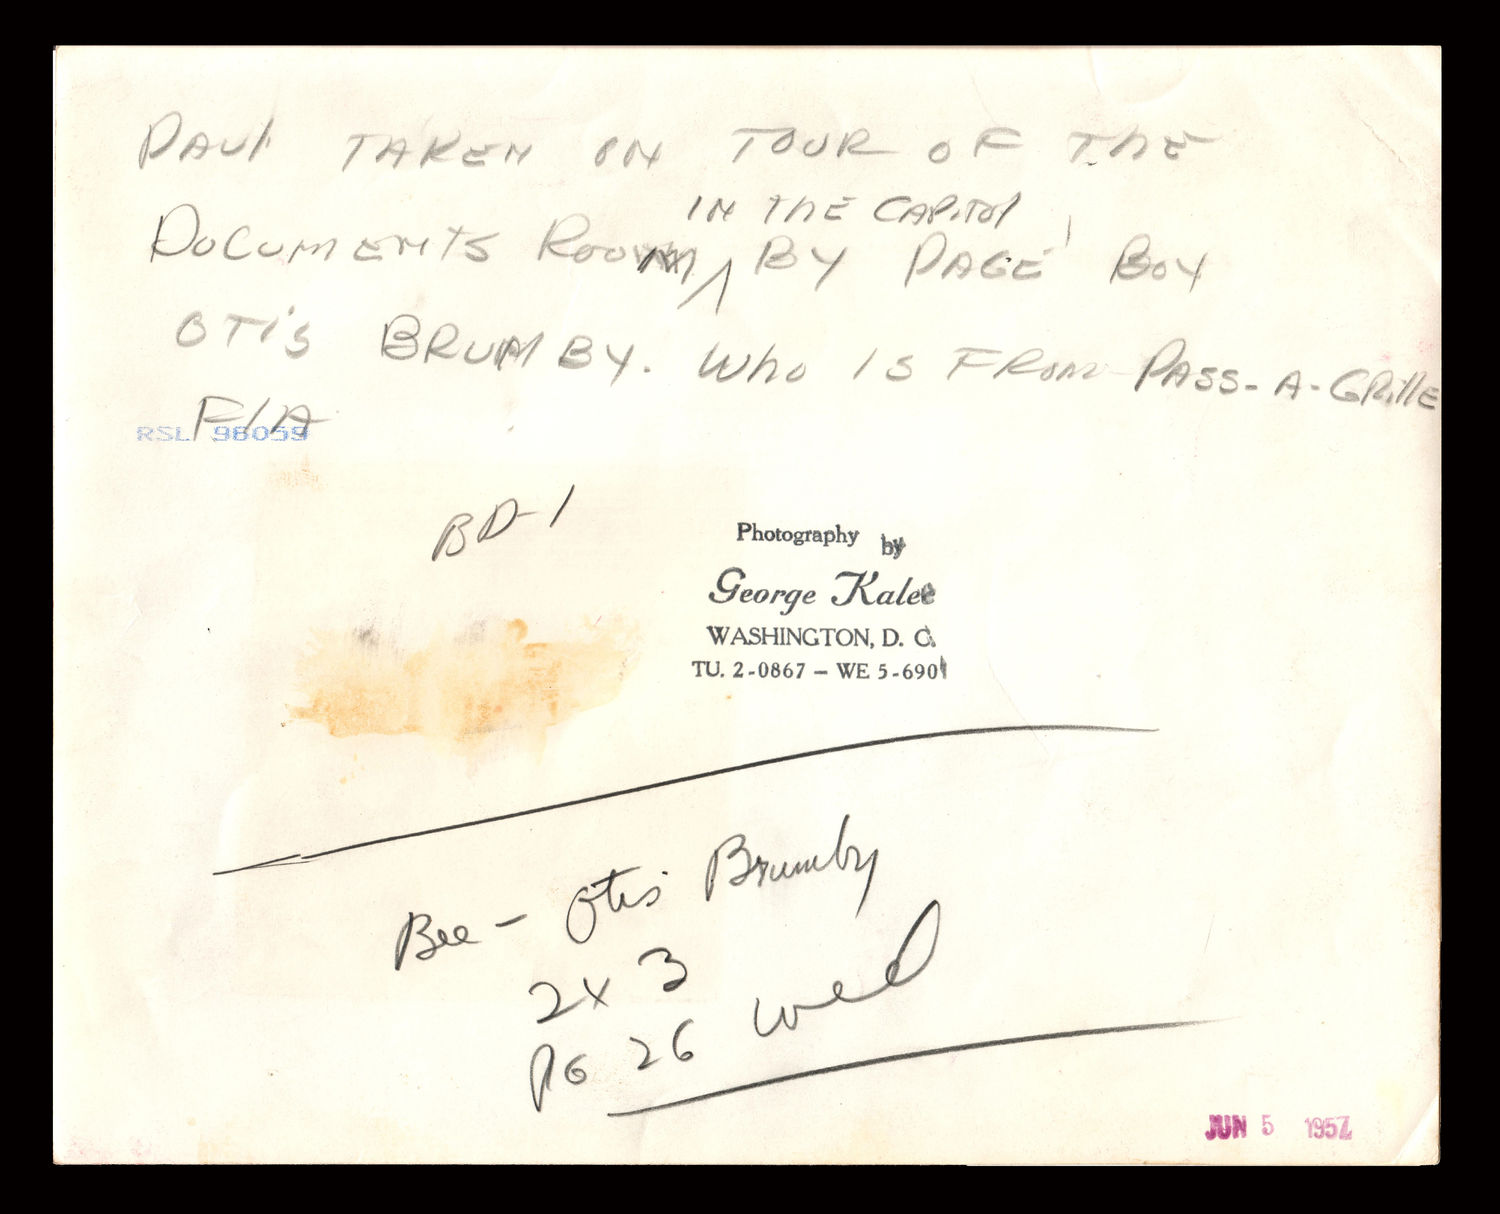 PAUL TAKEN ON TOUR OF THE
IN THE CAPITOL
DOCUMENTS ROOM BY PAGE BOY
OTIS BRUMBY. WHO IS FROM PASS-A-GRILLE
FLA
RSL 98059
BD-1
Photography by
George Kalec
WASHINGTON, D. C.
TU. 2-0867 – WE 5-690
Bee - Otis Brumby
2x3
PG 26 Wed
JUN 5 1957